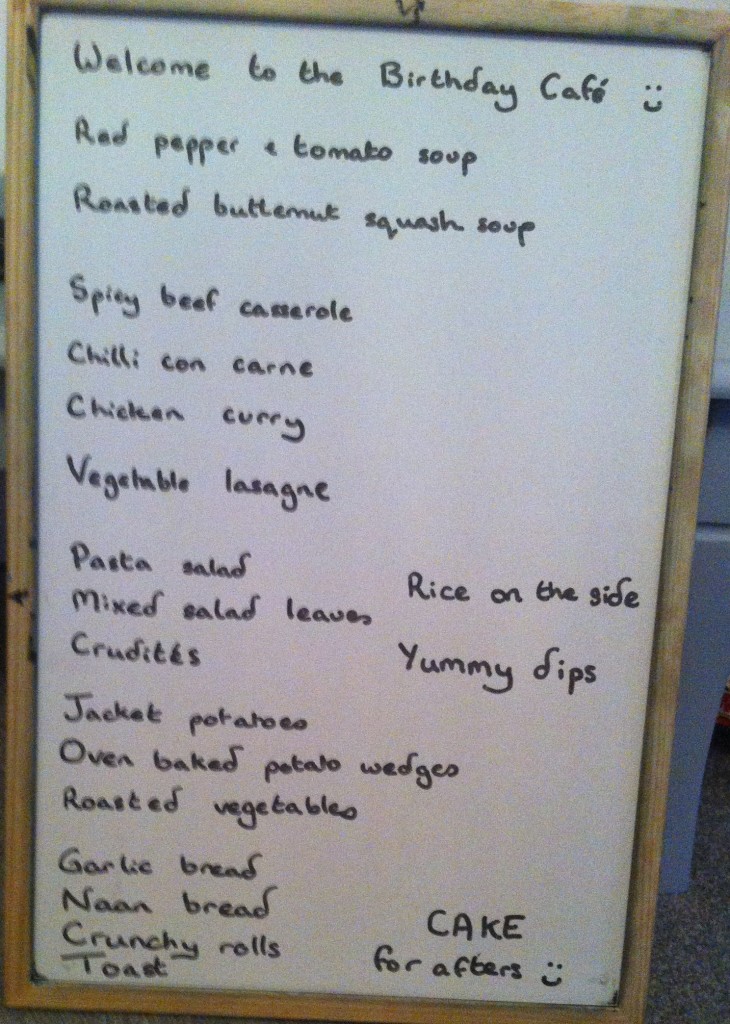 Welcome to the Birthday Café :)
Red pepper & tomato soup
Roasted butternut squash soup
Spicy beef casserole
Chilli con carne
Chicken curry
Vegetable lasagne
Pasta salad
Mixed salad leaves
Crudités
Rice on the side
Yummy dips
Jacket potatoes
Oven baked potato wedges
Roasted vegetables
Garlic bread
Naan bread
Crunchy rolls
Toast
CAKE
for afters :)